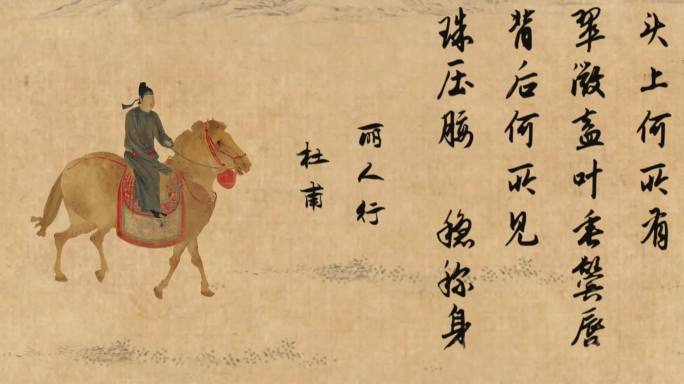 头上何所有
翠微盍叶垂鬓唇
背后何所见
珠压腰 稳称身
丽人行
杜甫